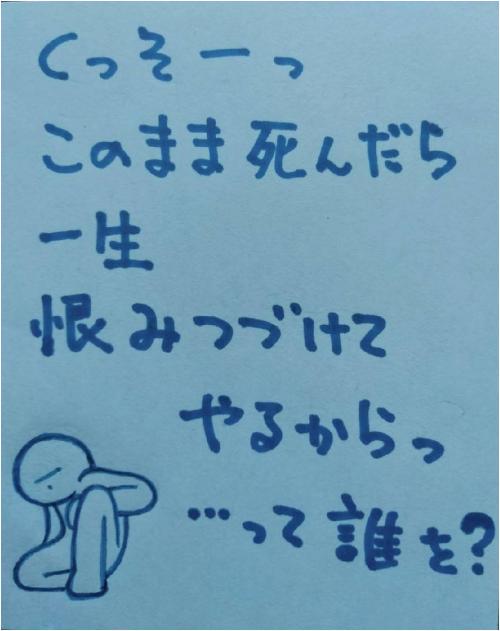 くっそーっ
このまま死んだら
一生
恨みつづけて
やるからっ
…って誰を?